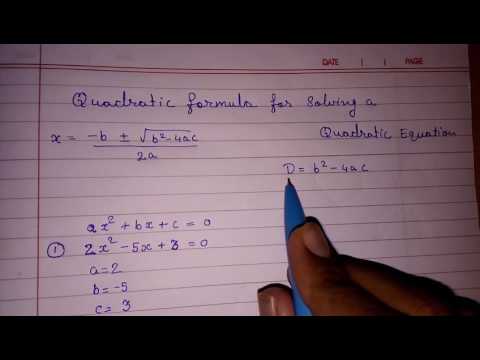 DATE | | PAGE
Quadratic formula for Solving a
Quadratic Equation
x = -b ± √b²-4ac / 2a
D = b² - 4ac
ax² + bx + c = 0
① 2x² - 5x + 3 = 0
a = 2
b = -5
c = 3